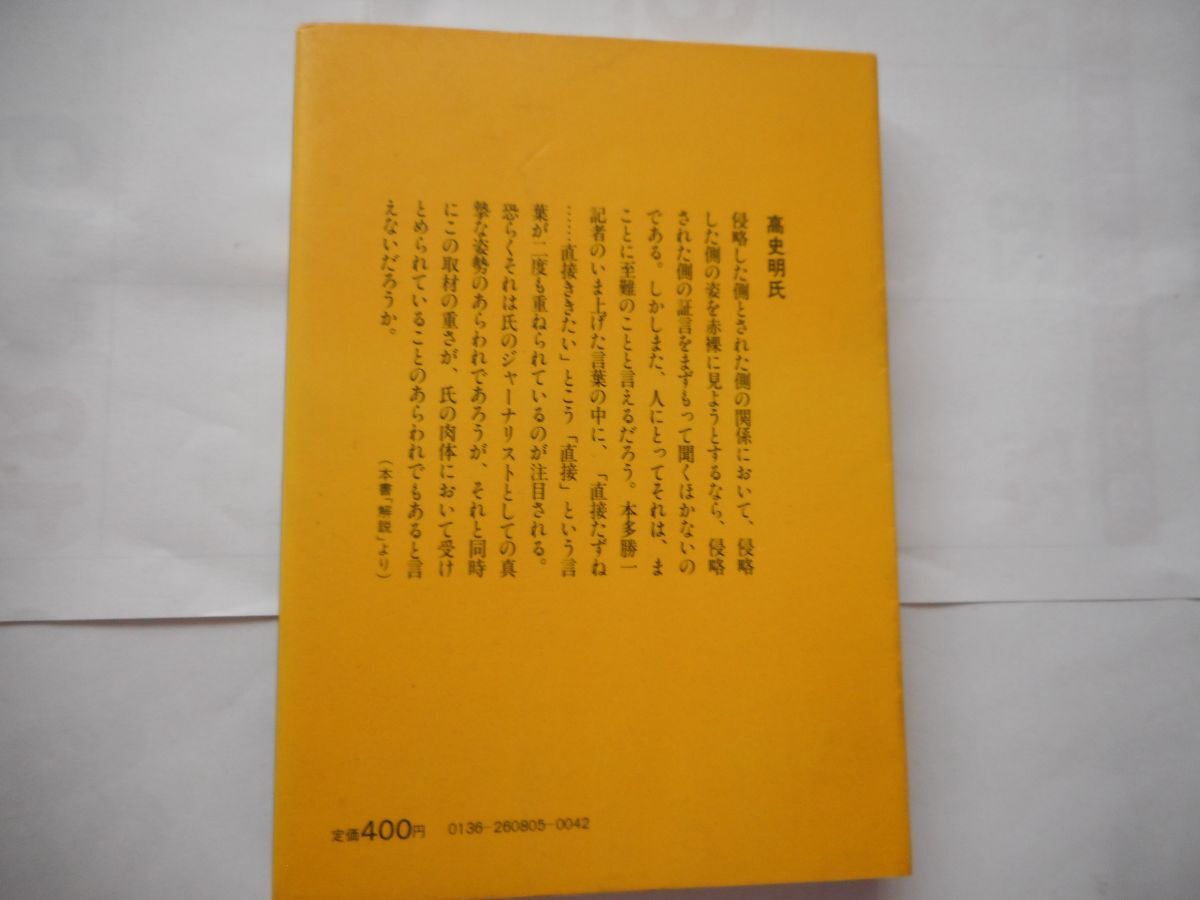 高史明氏
侵略した側とされた側の関係において、侵略
した側の姿を赤裸に見ようとするなら、侵略
された側の証言をまずもって聞くほかないの
である。しかしまた、人にとってそれは、ま
ことに至難のことと言えるだろう。本多勝一
記者のいま上げた言葉の中に、「直接たずね
……直接ききたい」とこう「直接」という言
葉が二度も重ねられているのが注目される。
恐らくそれは氏のジャーナリストとしての真
摯な姿勢のあらわれであろうが、それと同時
にこの取材の重さが、氏の肉体において受け
とめられていることのあらわれでもあると言
えないだろうか。
(本書「解説」より)
定価400円 0136-260805-0042